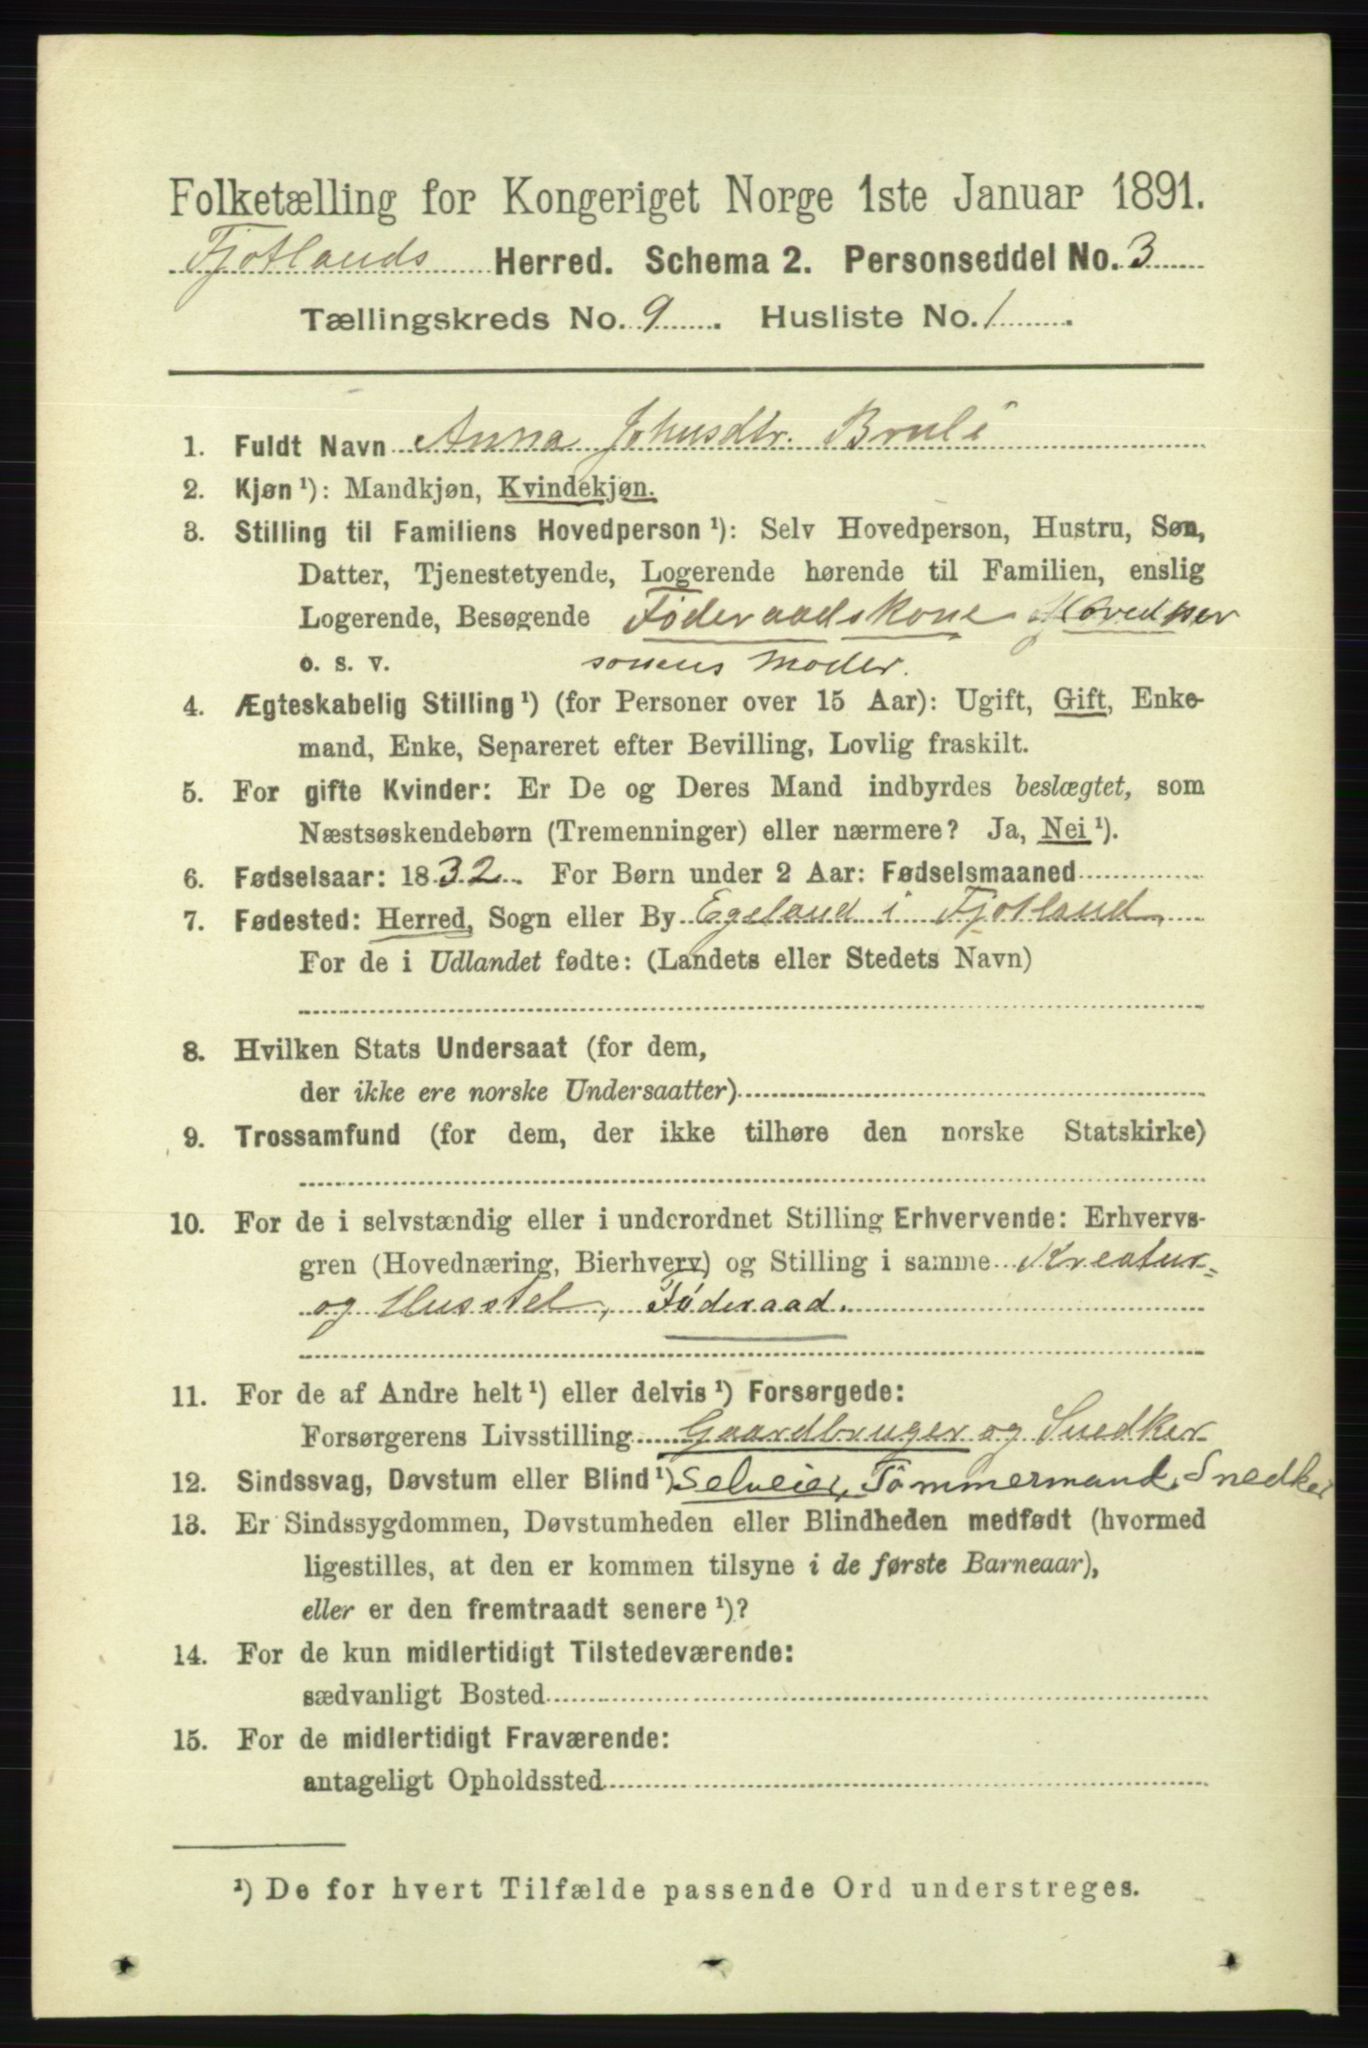 Folketælling for Kongeriget Norge 1ste Januar 1891.
Fjotlands Herred. Schema 2. Personseddel No. 3
Tællingskreds No. 9. Husliste No. 1.
1. Fuldt Navn Anna Johnsdtr. Bruli
2. Kjøn ¹): Mandkjøn, Kvindekjøn.
3. Stilling til Familiens Hovedperson ¹): Selv Hovedperson, Hustru, Søn,
Datter, Tjenestetyende, Logerende hørende til Familien, enslig
Logerende, Besøgende Føderaadskone Hovedper
o. s. v. sonens Moder.
4. Ægteskabelig Stilling ¹) (for Personer over 15 Aar): Ugift, Gift, Enke-
mand, Enke, Separeret efter Bevilling, Lovlig fraskilt.
5. For gifte Kvinder: Er De og Deres Mand indbyrdes beslægtet, som
Næstsøskendebørn (Tremenninger) eller nærmere? Ja, Nei ¹).
6. Fødselsaar: 1832. For Børn under 2 Aar: Fødselsmaaned
7. Fødested: Herred, Sogn eller By Egeland i Fjotland,
For de i Udlandet fødte: (Landets eller Stedets Navn)
8. Hvilken Stats Undersaat (for dem,
der ikke ere norske Undersaatter)
9. Trossamfund (for dem, der ikke tilhøre den norske Statskirke)
10. For de i selvstændig eller i underordnet Stilling Erhvervende: Erhvervs-
gren (Hovednæring, Bierhverv) og Stilling i samme Kreatur=
og Husstel, Føderaad.
11. For de af Andre helt ¹) eller delvis ¹) Forsørgede:
Forsørgerens Livsstilling Gaardbruger og Snedker
12. Sindssvag, Døvstum eller Blind ¹) Selveier, Tømmermand, Snedker
13. Er Sindssygdommen, Døvstumheden eller Blindheden medfødt (hvormed
ligestilles, at den er kommen tilsyne i de første Barneaar),
eller er den fremtraadt senere ¹)?
14. For de kun midlertidigt Tilstedeværende:
sædvanligt Bosted
15. For de midlertidigt Fraværende:
antageligt Opholdssted
¹) De for hvert Tilfælde passende Ord understreges.